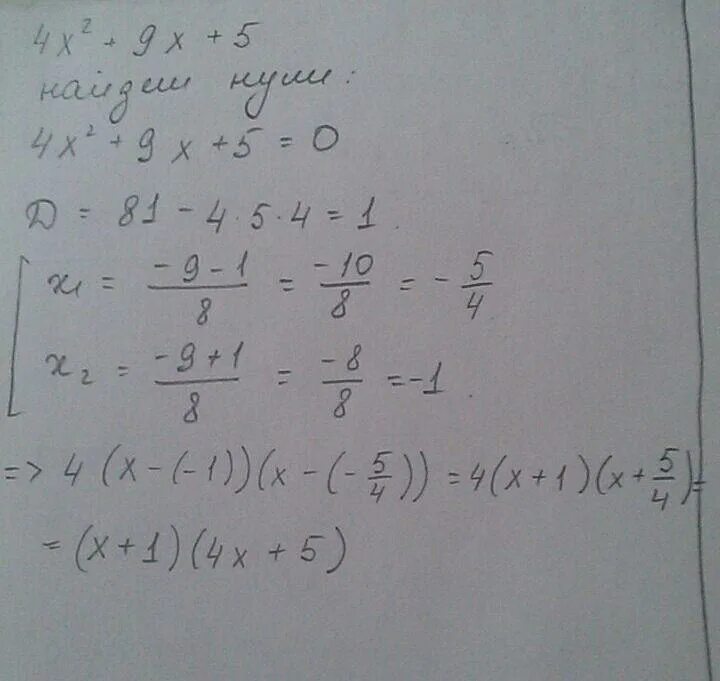 4x² + 9x + 5
найдем нули:
4x² + 9x + 5 = 0
Д = 81 - 4·5·4 = 1.
x₁ = (-9-1)/8 = -10/8 = -5/4
x₂ = (-9+1)/8 = -8/8 = -1.
=> 4(x-(-1))(x-(-5/4)) = 4(x+1)(x+5/4) =
= (x+1)(4x+5)